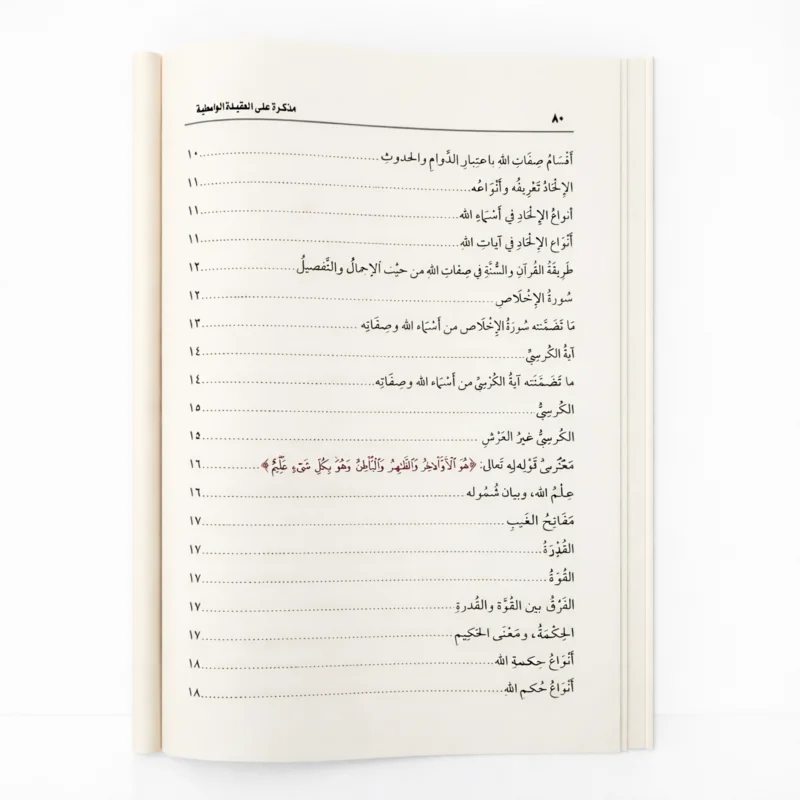 مذكرة على العقيدة الواسطية
٨٠
أَقْسَامُ صِفَاتِ اللهِ باعتِبارِ الدَّوامِ والحدوثِ ١٠
الإِلْحَادُ تَعْرِيفُه وأَنْوَاعُه ١١
أنواعُ الإِلْحَادِ في أَسْمَاءِ الله ١١
أَنْوَاع الإِلْحَادِ في آياتِ اللهِ ١١
طَرِيقَةُ القُرآنِ والسُّنَّةِ في صِفاتِ اللهِ من حيْث الإجمالُ والتَّفصيلُ ١٢
سُورةُ الإِخْلَاصِ ١٢
مَا تَضَمَّنته سُورَةُ الإِخْلَاصِ من أَسْمَاء الله وصِفَاتِه ١٣
آيةُ الكُرسِيِّ ١٤
ما تَضَمَّنَته آيةُ الكُرْسِيِّ من أَسْمَاء الله وصِفَاتِه ١٤
الكُرسِيُّ ١٥
الكُرسِيُّ غيرُ العَرْشِ ١٥
قَوْلِه تَعالى: ﴿هُوَ ٱلْأَوَّلُ وَٱلظَّٰهِرُ وَٱلْبَاطِنُ وَهُوَ بِكُلِّ شَىْءٍ عَلِيمٌ﴾ ١٦
عِلْمُ الله، وبيان شُمُوله ١٦
مَفَاتِحُ الغَيبِ ١٧
القُدْرَةُ ١٧
القُوَةُ ١٧
الفَرْقُ بين القُوَّة والقُدرةِ ١٧
الحِكْمَةُ، ومَعْنَى الحَكِيم ١٧
أَنْوَاعُ حِكمةِ الله ١٨
أَنْوَاعُ حُكمِ اللهِ ١٨